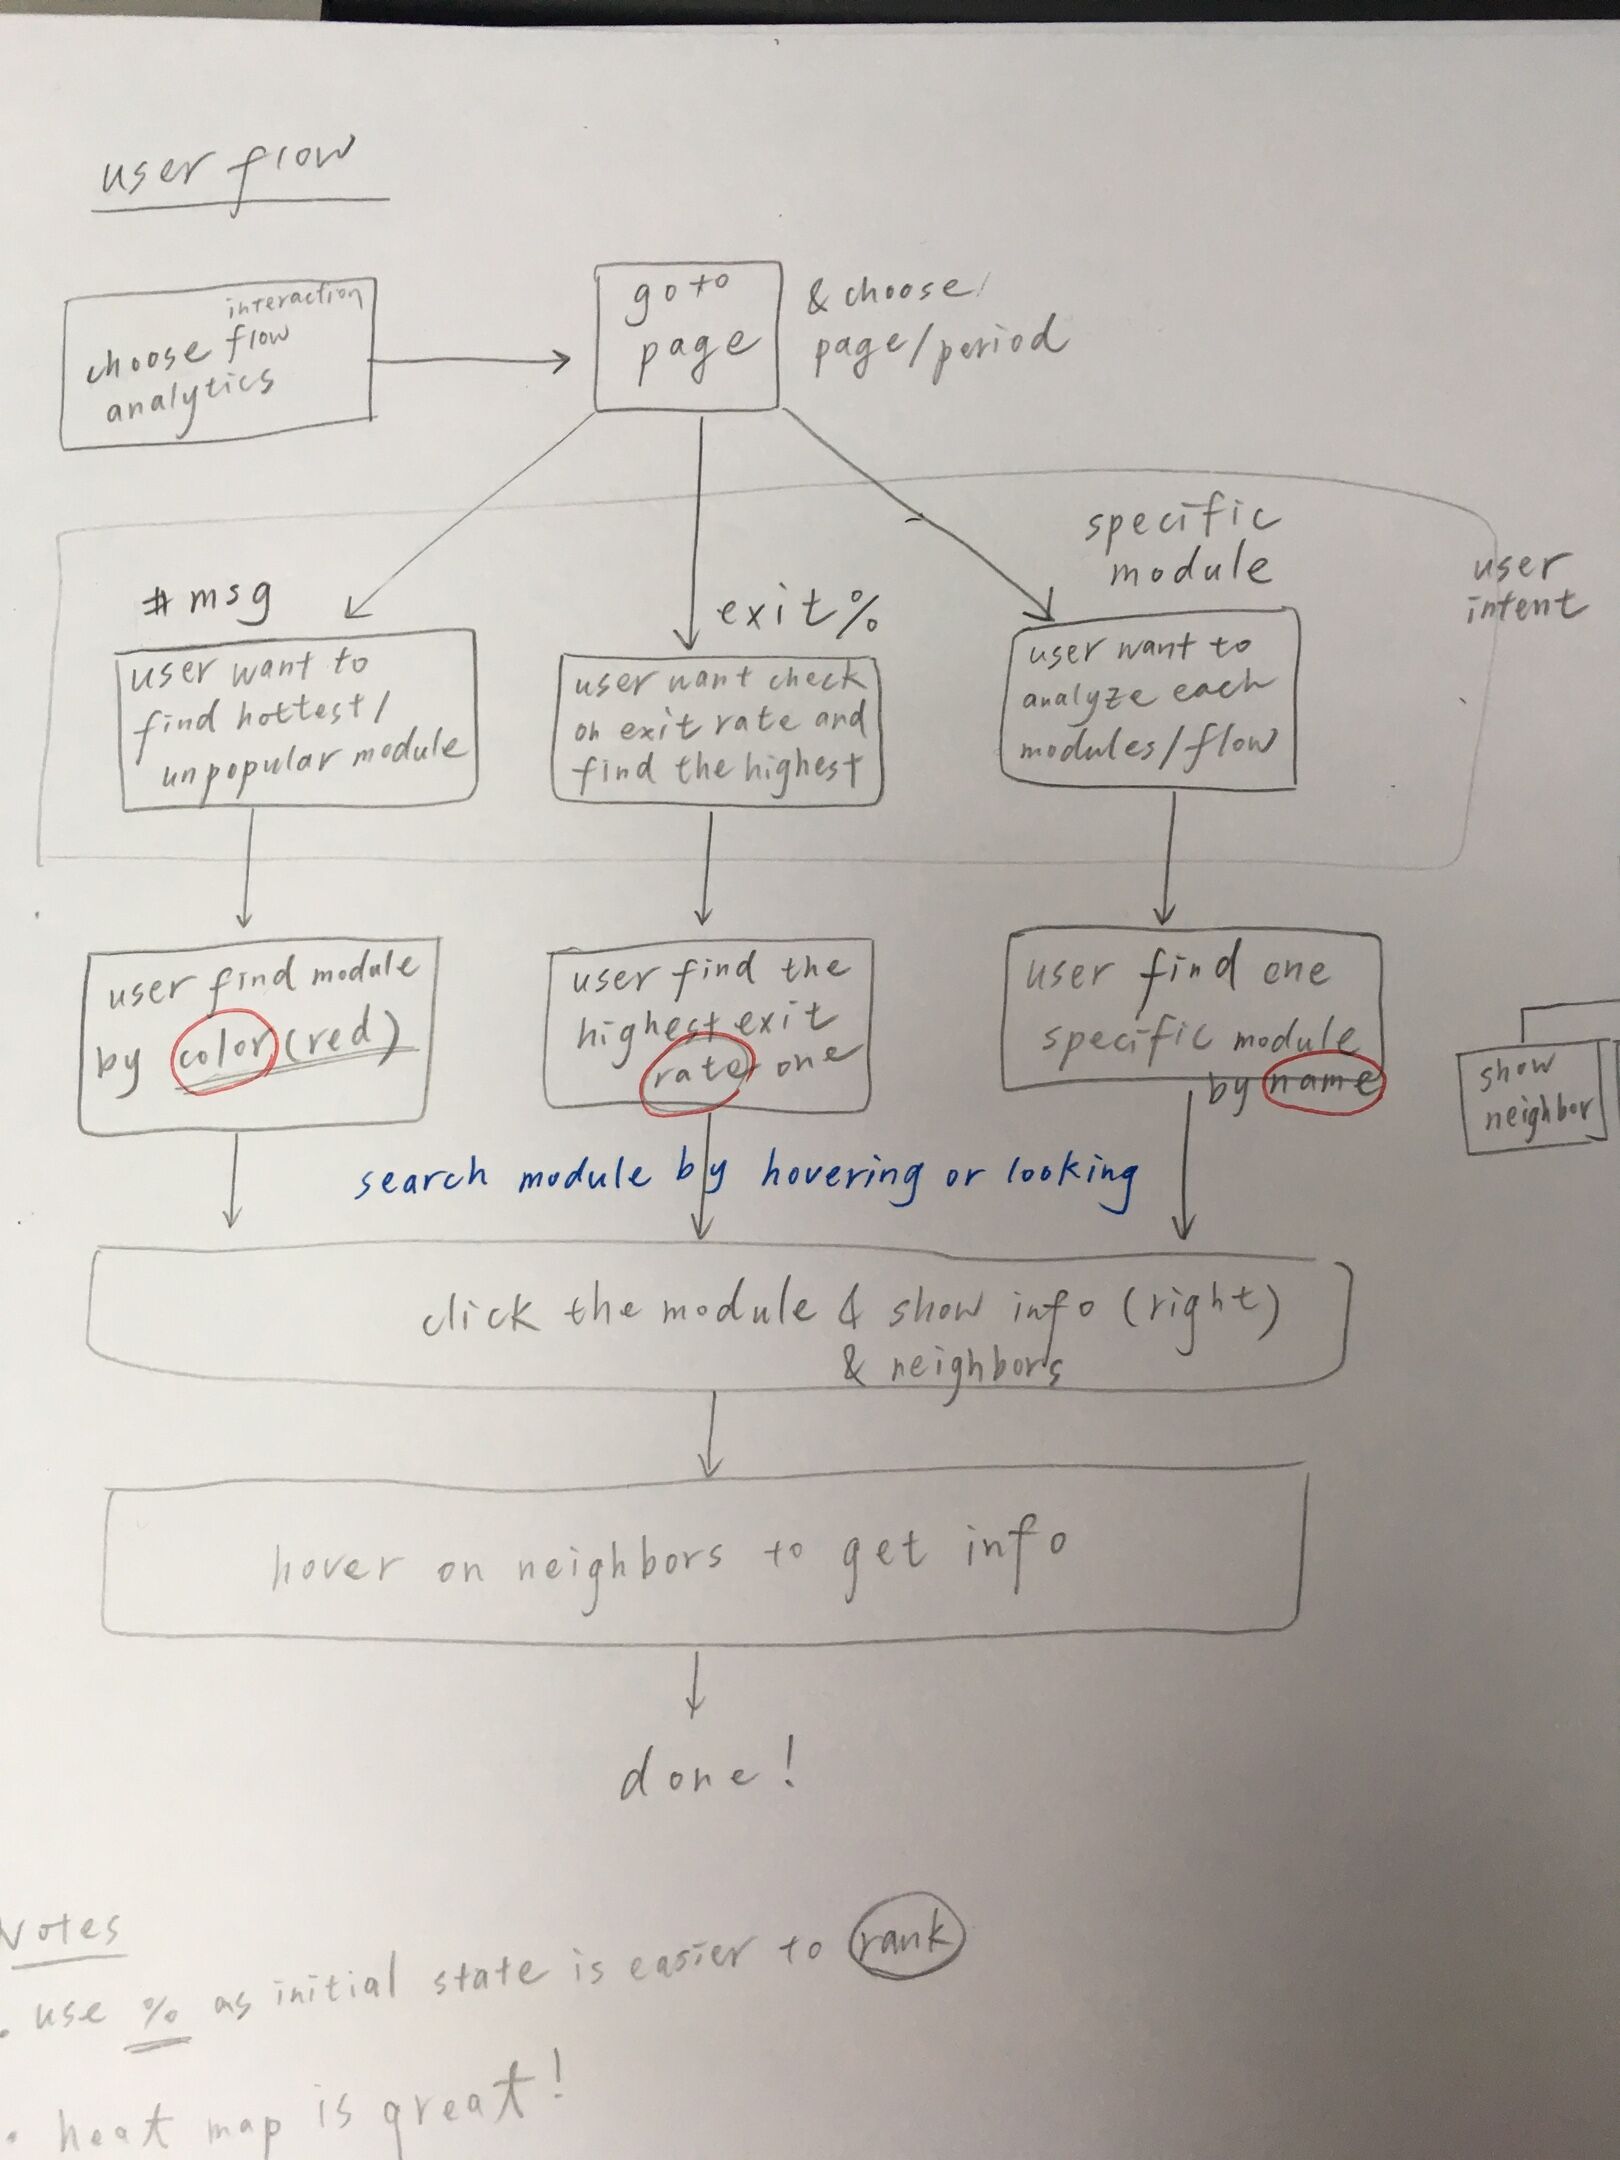 user flow
interaction
choose flow
analytics
go to
page
& choose
page/period
user
intent
#msg
user want to
find hottest/
unpopular module
exit%
user want check
on exit rate and
find the highest
specific
module
user want to
analyze each
modules/flow
user find module
by color (red)
user find the
highest exit
rate one
user find one
specific module
by name
show
neighbor
search module by hovering or looking
click the module & show info (right)
& neighbors
hover on neighbors to get info
done!
Notes
• use % as initial state is easier to rank
• heat map is great!